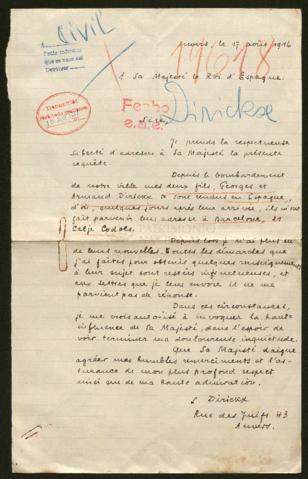 Civil
Anvers, le 17 août 1916
19618
A Sa Majesté le Roi d'Espagne.
Transmitido
Fecho
e.a.e.
Dirickx
Sire,
Je prends la respectueuse
liberté d'adresser à Sa Majesté la présente
requête.
Depuis le bombardement
de notre ville mes deux fils, Georges et
Armand Dirickx se sont rendus en Espagne,
d'où, quelques jours après leur arrivée, ils m'ont
fait parvenir leur adresse à Barcelone, 21
Calle Codols.
Depuis lors je n'ai plus eu
de leurs nouvelles. Toutes les démarches que
j'ai faites pour obtenir quelques renseignements
à leur sujet sont restées infructueuses, et
aux lettres que je leur envoie il ne me
parvient pas de réponse.
Dans ces circonstances,
je me crois autorisé à invoquer la haute
influence de Sa Majesté, dans l'espoir de
voir terminer ma douloureuse inquiétude.
Que Sa Majesté daigne
agréer mes humbles remerciments et l'as-
surance de mon plus profond respect
ainsi que de ma haute admiration.
Dirickx
Rue des Juifs 43
Anvers.
PATRIMONIO